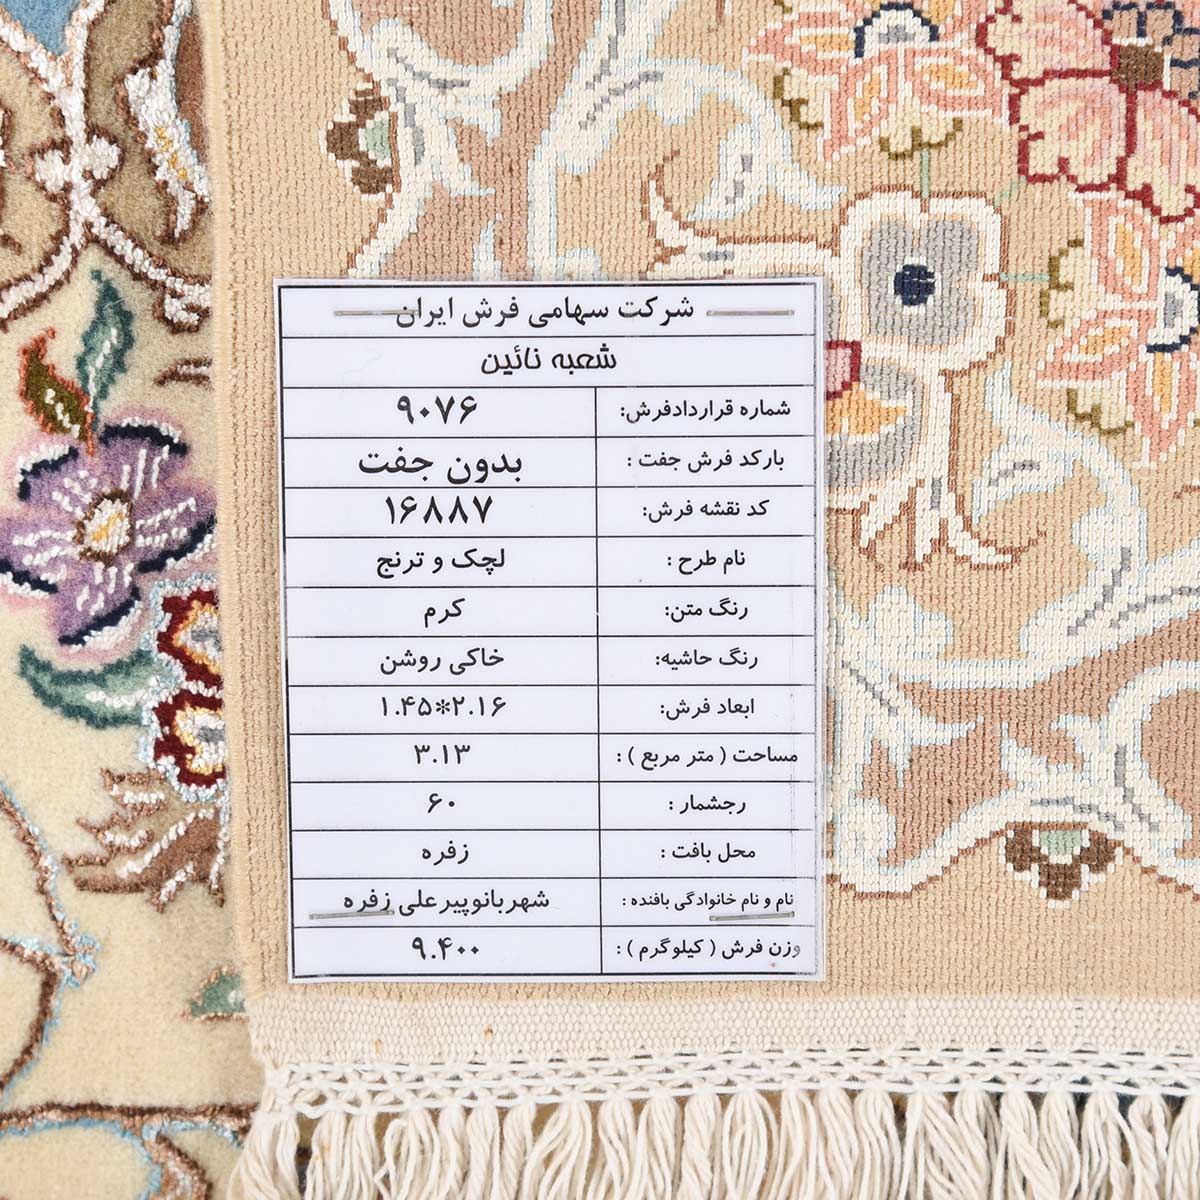 شرکت سهامی فرش ایران
شعبه نائین
شماره قراردادفرش: ۹۰۷۶
بارکد فرش جفت : بدون جفت
کد نقشه فرش: ۱۶۸۸۷
نام طرح : لچک و ترنج
رنگ متن: کرم
رنگ حاشیه: خاکی روشن
ابعاد فرش: ۱.۴۵*۲.۱۶
مساحت ( متر مربع ) : ۳.۱۳
رجشمار : ۶۰
محل بافت : زفره
نام و نام خانوادگی بافنده : شهربانوپیرعلی زفره
وزن فرش ( کیلوگرم ) : ۹.۴۰۰